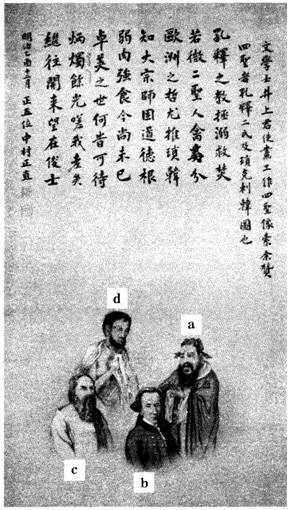 文學士井上君使畫工作四聖像索余賛
四聖者孔釋二氏及瑣克剌韓圖也
孔釋之教拯溺救焚
若微二聖人禽曷分
歐洲之哲尤推瑣韓
知大宗師固道德根
弱肉强食今尚未已
卓美之世何旹可待
炳燭餘光嗟我老矣
繼往開来望在俊士
明治乙酉十二月 正五位 中村正直
d
a
c
b